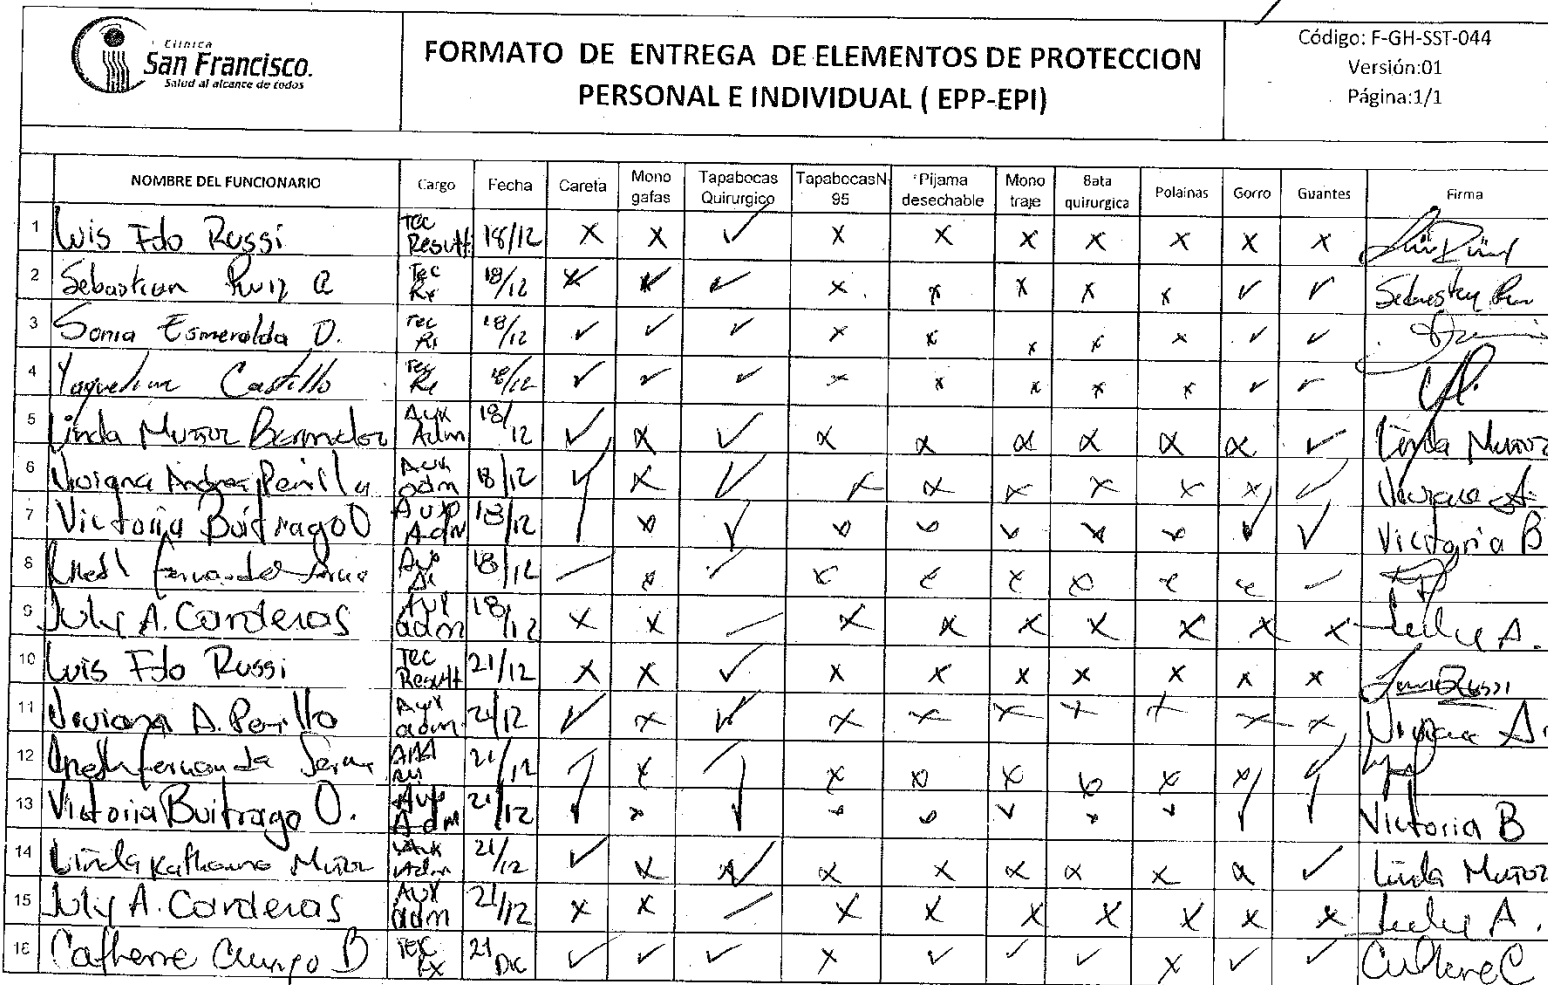 Clinica
San Francisco.
Salud al alcance de todos
FORMATO DE ENTREGA DE ELEMENTOS DE PROTECCION
PERSONAL E INDIVIDUAL ( EPP-EPI)
Código: F-GH-SST-044
Versión:01
Página:1/1
NOMBRE DEL FUNCIONARIO Cargo Fecha Careta Mono gafas Tapabocas Quirurgico TapabocasN 95 Pijama desechable Mono traje Bata quirurgica Polainas Gorro Guantes Firma
1 Luis Fdo Russi Tec Result 18/12 X X ✓ X X X X X X X
2 Sebastian Ruiz Tec Rx 18/12 ✓ ✓ X X X X X ✓ ✓ Sebastian
3 Sonia Esmeralda D. Tec 18/12 ✓ ✓ ✓ X X X X X ✓ ✓
4 Castillo Tec 18/12 ✓ ✓ ✓ X X X X X ✓ ✓
5 Linda Muñoz Aux Adm 18/12 ✓ X ✓ X X X X X X ✓ Linda Muñoz
6 Viviana Andrea Aux adm 18/12 ✓ X ✓ X X X X X X ✓ Viviana A.
7 Victoria Buitrago O Aux Adm 18/12 ✓ X ✓ X X X X X ✓ ✓ Victoria B
8 Aux 18/12 ✓ X ✓ X X X X X X ✓
9 July A. Cardenas Aux adm 18/12 X X ✓ X X X X X X X A.
10 Luis Fdo Russi Tec Result 21/12 X X ✓ X X X X X X X Russi
11 Viviana A. Aux adm 21/12 ✓ X ✓ X X X X X X X A.
12 21/12 ✓ X ✓ X X X X X X ✓
13 Victoria Buitrago O. Aux Adm 21/12 ✓ X ✓ X X X X X ✓ ✓ Victoria B
14 Linda Katherine Muñoz Adm 21/12 ✓ X ✓ X X X X X X ✓ Linda Muñoz
15 July A. Cardenas Aux adm 21/12 X X ✓ X X X X X X X A.
16 B Tec 21 Dic ✓ ✓ ✓ X ✓ ✓ ✓ X ✓ ✓